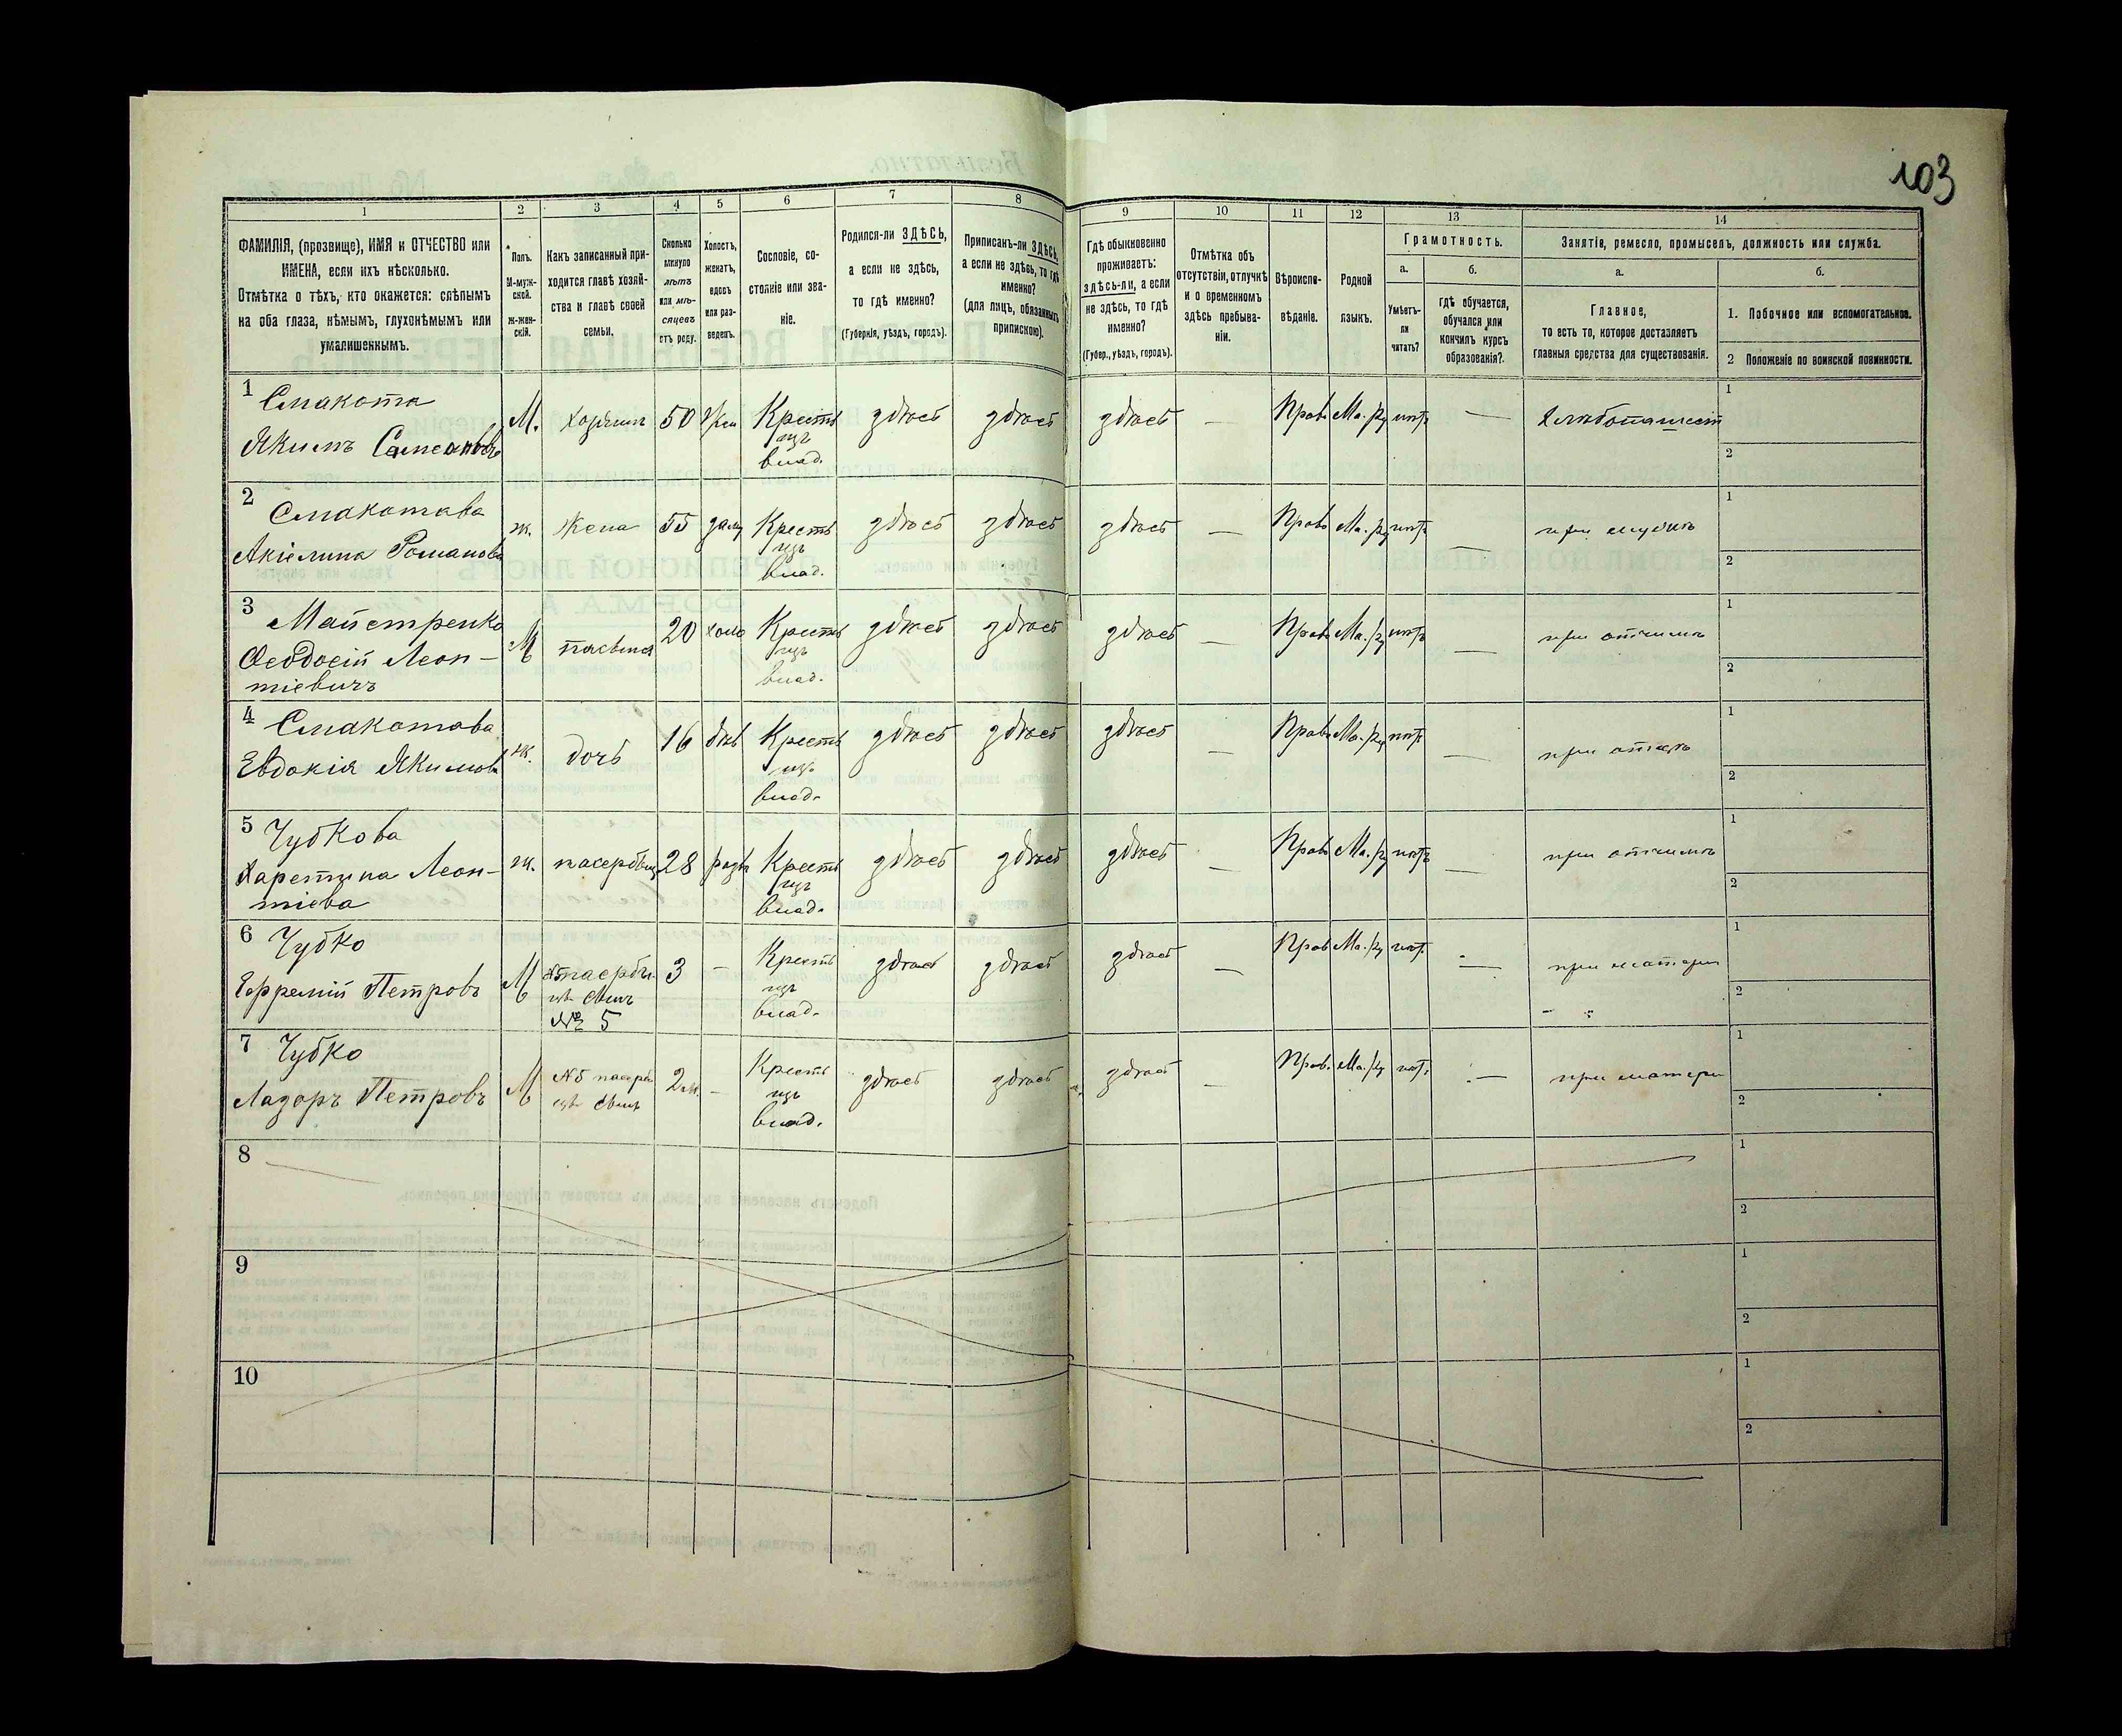 103
1
2
3
4
5
6
7
8
9
10
11
12
13
14
ФАМИЛІЯ, (прозвище), ИМЯ и ОТЧЕСТВО или
ИМЕНА, если ихъ нѣсколько.
Отмѣтка о тѣхъ, кто окажется: слѣпымъ
на оба глаза, нѣмымъ, глухонѣмымъ или
умалишеннымъ.
Полъ.
М-муж-
ской.
ж-жен-
скій.
Какъ записанный при-
ходится главѣ хозяй-
ства и главѣ своей
семьи.
Сколько
минуло
лѣтъ
или мѣ-
сяцевъ
отъ роду.
Холостъ,
женатъ,
вдовъ
или раз-
веденъ.
Сословіе, со-
стояніе или зва-
ніе.
Родился-ли ЗДѢСЬ,
а если не здѣсь,
то гдѣ именно?
(Губернія, уѣздъ, городъ).
Приписанъ-ли ЗДѢСЬ,
а если не здѣсь, то гдѣ
именно?
(для лицъ, обязанныхъ
припискою).
Гдѣ обыкновенно
проживаетъ:
здѣсь-ли, а если
не здѣсь, то гдѣ
именно?
(Губер., уѣздъ, городъ).
Отмѣтка объ
отсутствіи, отлучкѣ
и о временномъ
здѣсь пребыва-
ніи.
Вѣроиспо-
вѣданіе.
Родной
языкъ.
Грамотность.
а.
Умѣетъ-
ли
читать?
б.
гдѣ обучается,
обучался или
кончилъ курсъ
образованія?
Занятіе, ремесло, промыселъ, должность или служба.
а.
Главное,
то есть то, которое доставляетъ
главныя средства для существованія.
б.
1. Побочное или вспомогательное.
2 Положеніе по воинской повинности.
1 Смакота
Якимъ Самсоновъ
М. Хозяинъ 50 Жен Крестъ
изъ
влад.
здѣсь здѣсь здѣсь — Прав. Ма./ру нѣтъ — Хлѣбопашест
1
2
2 Смакотава
Акіелина Романова
ж. Жена 55 зам Крестъ
изъ
влад.
здѣсь здѣсь здѣсь — Прав. Ма./ру нѣтъ — при мужѣ
1
2
3 Майстренко
Ѳеодосій Леон-
тіевичъ
М 20 холо Крестъ
изъ
влад.
здѣсь здѣсь здѣсь — Прав. Ма./ру нѣтъ — при отчимѣ
1
2
4 Смакотава
Евдокія Якимова
ж. дочь 16 дѣв Крестъ
изъ
влад.
здѣсь здѣсь здѣсь — Прав. Ма./ру нѣтъ — при отцѣ
1
2
5 Чубкова
Харетина Леон-
тіева
ж. пасербица 28 Крестъ
изъ
влад.
здѣсь здѣсь здѣсь — Прав. Ма./ру нѣтъ — при отчимѣ
1
2
6 Чубко
Ефремій Петровъ
М
сынъ
№ 5
3 — Крестъ
изъ
влад.
здѣсь здѣсь здѣсь — Прав. Ма./ру нѣтъ — при матери
1
2
7 Чубко
Лазоръ Петровъ
М №5
сынъ
2 м. — Крестъ
изъ
влад.
здѣсь здѣсь здѣсь — Прав. Ма./ру нѣт. — при матери
1
2
8
1
2
9
1
2
10
1
2